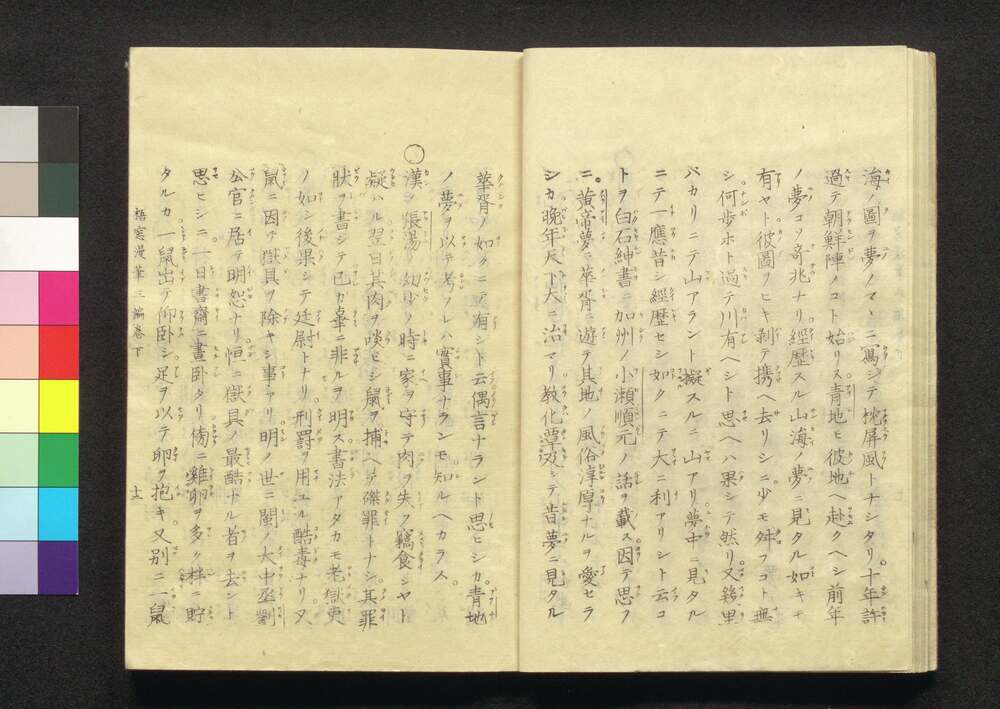 海ノ圖ヲ夢ノマヽニ寫シテ枕屏風トナシタリ。十年許
過テ朝鮮陣ノコト始リヌ青地モ彼地ヘ赴クヘシ前年
ノ夢コソ奇兆ナリ經歴スル山海ノ夢ニ見タル如キモ
有ヤト彼圖ヲヒキ剥テ携ヘ去リシニ少モ舛フコト無
シ何歩ホト過テ川有ヘシト思ヘハ果シテ然リ又幾里
バカリニテ山アラント擬スルニ山アリ夢中ニ見タル
ニテ一應昔シ經歴セシ如クニテ大ニ利アリシト云コ
トヲ白石紳書ニ加州ノ小瀬順元ノ話ヲ載ス因テ思フ
ニ。黄帝夢ニ華胥ニ遊テ其地ノ風俗淳厚ナルヲ愛セラ
シカ晩年天下大ニ治マリ教化覃及シテ昔夢ニ見タル
華胥ノ如クニテ有シト云偶言ナラント思ヒシカ青地
ノ夢ヲ以テ考フレハ實事ナランモ知ルヘカラス。
○漢ノ張湯ノ幼少ノ時ニ家ヲ守テ肉ヲ失フ竊食シヤト
疑ハル翌日其肉ヲ啖ヒシ鼠ヲ捕ヘテ磔罪トナシ其罪
狀ヲ書シテ己カ辜ニ非ルヲ明ス書法アタカモ老獄吏
ノ如シ後果シテ廷尉トナリ刑罸ヲ用ユル酷毒ナリ又
鼠ニ因テ獄具ヲ除キシ事アリ明ノ世ニ閩ノ大中丞劉
公官ニ居テ明恕ナリ恒ニ獄具ノ最酷ナル者ヲ去ント
思ヒシニ一日書齋ニ晝卧タリ傍ニ雞卵ヲ多ク柈ニ貯
タルカ一鼠出テ仰卧シ足ヲ以テ卵ヲ抱キ又別ニ一鼠
梧窓漫筆三編卷下
十一